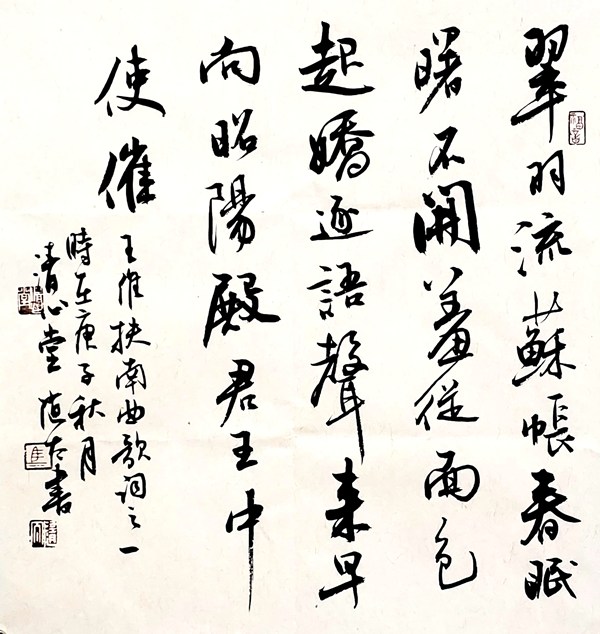 翠羽流蘇帳春眠
曙不開羞從面色
起嬌逐語聲来早
向昭陽殿君王中
使催
王維扶南曲歌詞之一
時在庚子秋月
清心堂書